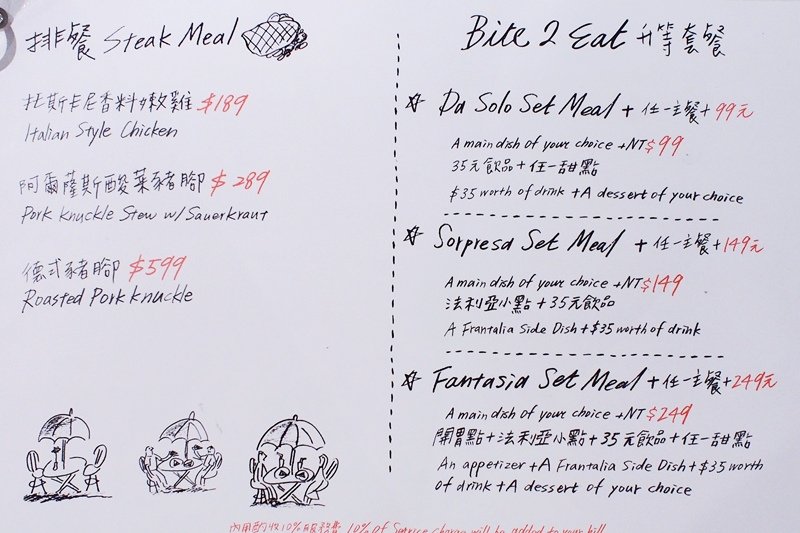 排餐 Steak Meal
托斯卡尼香料嫩雞 $189
Italian Style Chicken
阿爾薩斯酸菜豬腳 $289
Pork Knuckle Stew w/ Sauerkraut
德式豬腳 $599
Roasted Pork Knuckle
Bite 2 Eat 升等套餐
Da Solo Set Meal + 任一主餐 + 99元
A main dish of your choice + NT$99
35元飲品 + 任一甜點
$35 worth of drink + A dessert of your choice
Sorpresa Set Meal + 任一主餐 + 149元
A main dish of your choice + NT$149
法利亞小點 + 35元飲品
A Frantalia Side Dish + $35 worth of drink
Fantasia Set Meal + 任一主餐 + 249元
A main dish of your choice + NT$249
開胃點 + 法利亞小點 + 35元飲品 + 任一甜點
An appetizer + A Frantalia Side Dish + $35 worth
of drink + A dessert of your choice
內用酌收10%服務費 10% of charge will be added to your bill